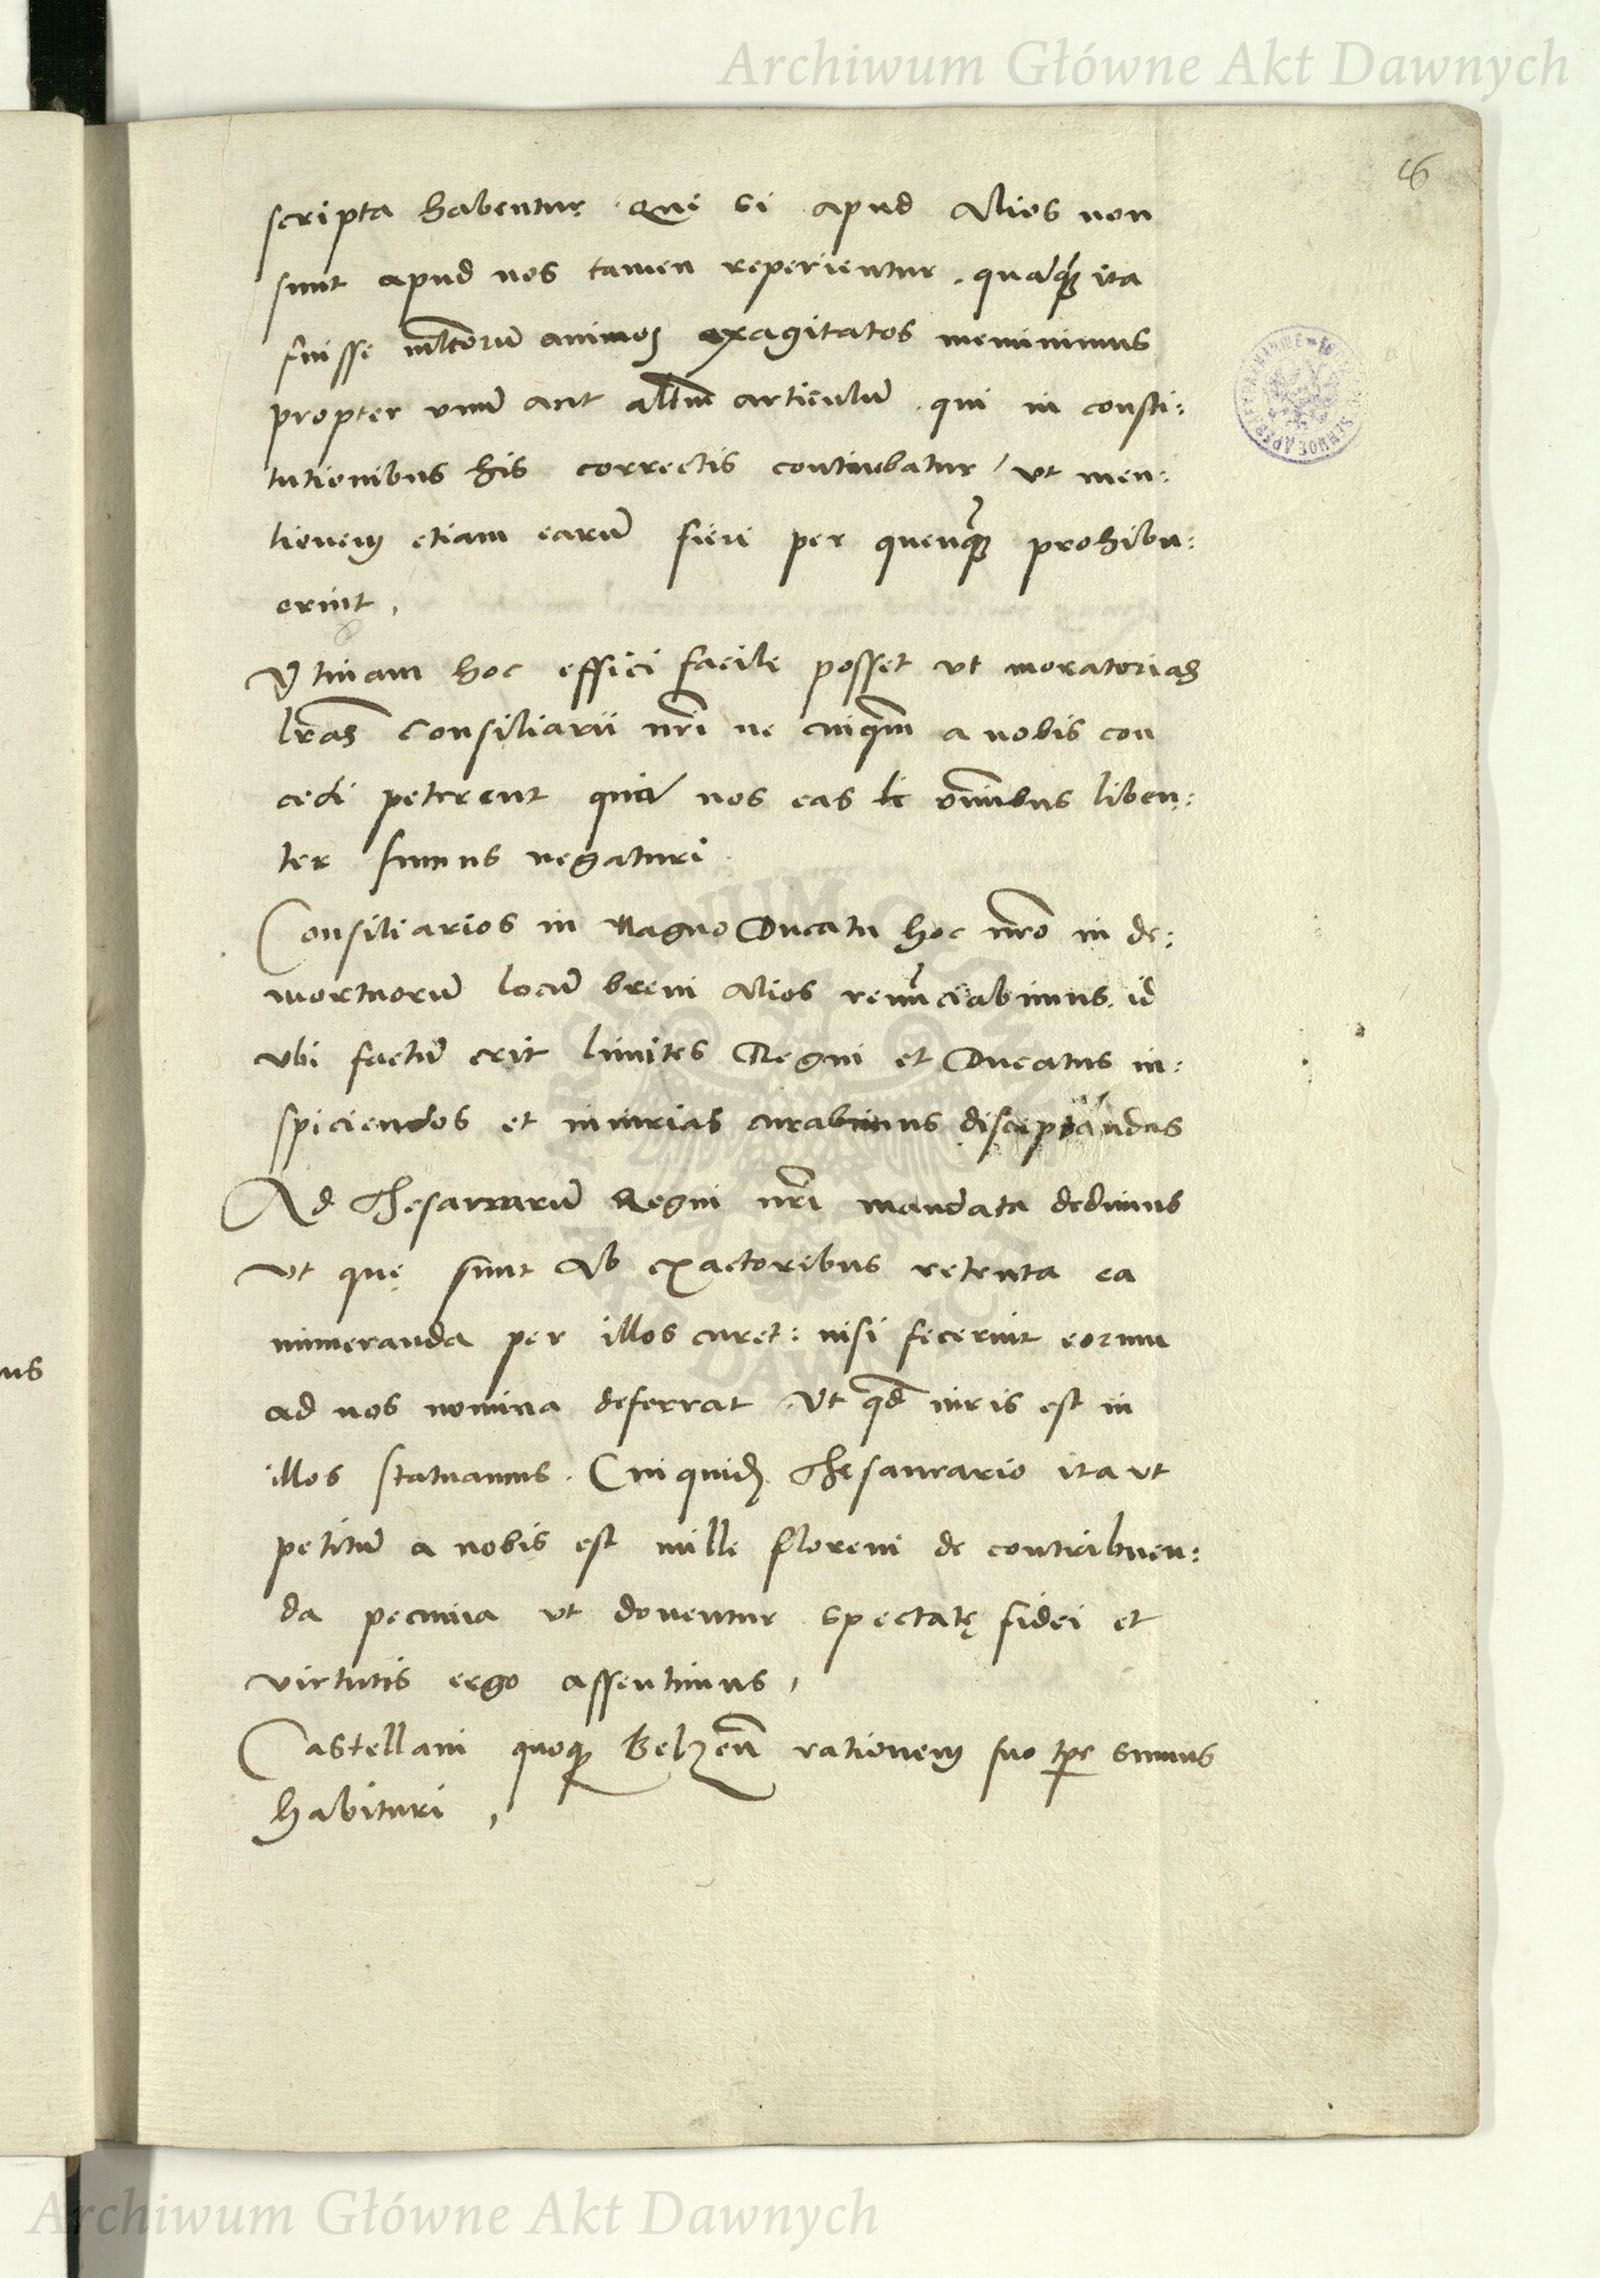 Archiwum Główne Akt Dawnych
16
scripta habentur. Qui si apud alios non
sunt apud nos tamen reperientur. quamq̃ ita
fuisse mltorū animos exagitatos meminimus
propter vnū aut altm̄ articulū qui in consti:
tutionibus his correctis continebatur / vt men:
tionem etiam earū fieri per quenq̃ prohibu:
erint,
Vtinam hoc effici facile posset vt moratorias
lrãs Consiliarii nr̃i ne cuiqm̄ a nobis con
cedi peterent quia nos eas omnibus liben:
ter sumus negaturi.
Consiliarios in Magno Ducatu hoc nr̃o in de:
mortuorū locū brevi alios renunciabimus. id
vbi factū erit limites Regni et Ducatus in:
spiciendos et iniurias curabimus disceptandas
Ad Thesaurarū Regni nr̃i mandata dedimus
vt quę sunt ab exactoribus retenta ea
numeranda per illos curet: nisi fecerint eorum
ad nos nomina deferrat. Vt qd̄ iuris est in
illos statuamus. Cui quidē Thesaurario ita vt
petitū a nobis est mille floreni de contribuen:
da pecunia vt donentur spectatę fidei et
virtutis ergo assentimus,
Castellani quoq̃ Belzen̄ rationem suo tp̄e sumus
habituri,
us
Archiwum Główne Akt Dawnych